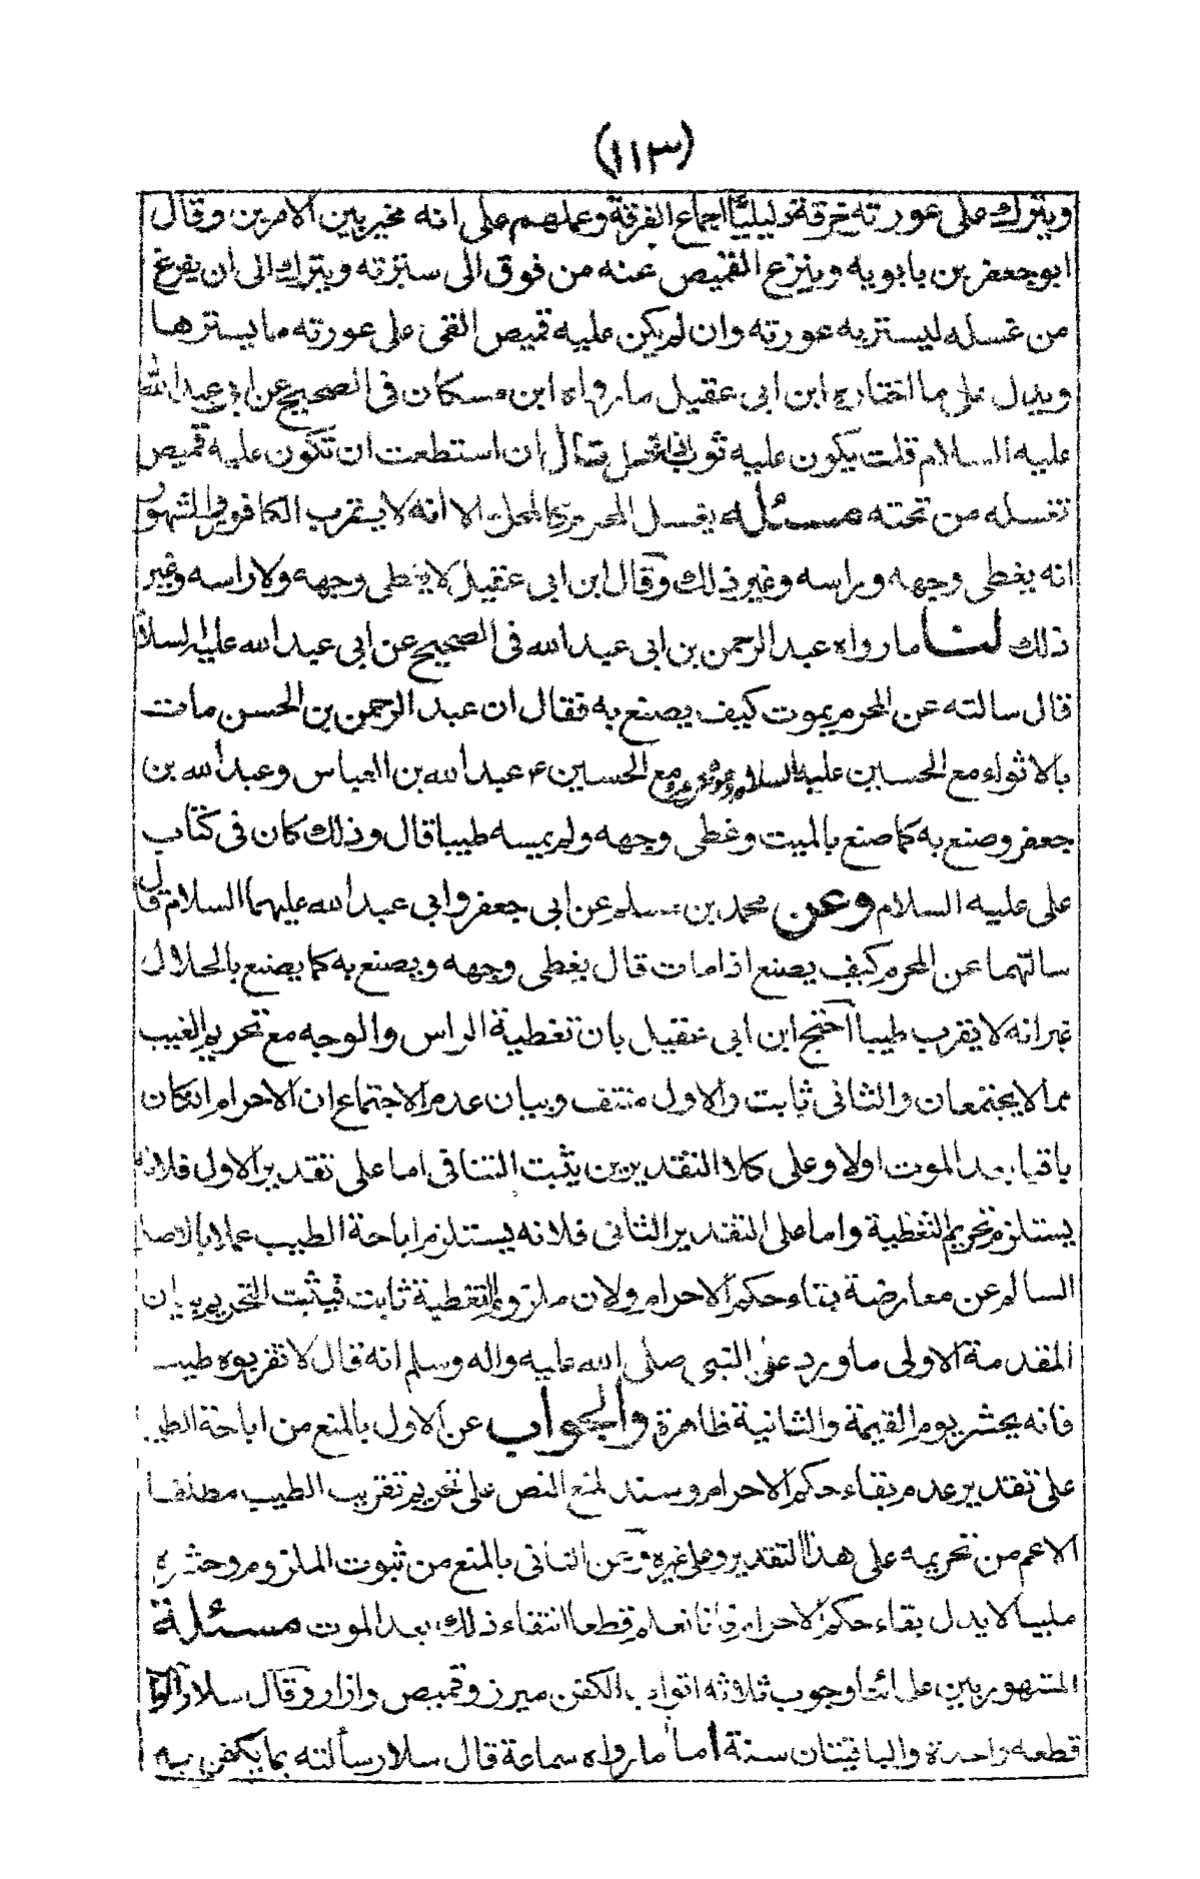 (١١٣)
ويترك على عورته خرقة دليلنا اجماع الفرقة وعملهم على انه مخير بين الامرين وقال
ابو جعفر بن بابويه وينزع القميص عنه من فوق الى سترته ويترك الى ان يفرغ
من غسله ليستر به عورته وان لم يكن عليه قميص القى على عورته ما يسترها
ويدل على ما اختاره ابن ابى عقيل ما رواه ابن مسكان فى الصحيح عن ابى عبد الله
عليه السلام قلت يكون عليه ثوب اذا غسل قال ان استطعت ان تكون عليه قميص
تغسله من تحته مسئله يغسل المحرم كالمحل الا انه لا يقرب الكافور المشهور
انه يغطى وجهه وراسه وغير ذلك وقال ابن ابى عقيل لا يغطى وجهه ولا راسه وغير
ذلك لنا ما رواه عبد الرحمن بن ابى عبد الله فى الصحيح عن ابى عبد الله عليه السلام
قال سالته عن المحرم يموت كيف يصنع به فقال ان عبد الرحمن بن الحسن مات
بالاثواء مع الحسين عليه السلام وهو محرم ومع الحسين ع عبد الله بن العباس وعبد الله بن
جعفر وصنع به كما صنع بالميت وغطى وجهه ولم يمسه طيبا قال وذلك كان فى كتاب
على عليه السلام وعن محمد بن مسلم عن ابى جعفر وابي عبد الله عليهما السلام قال
سالتهما عن المحرم كيف يصنع اذا مات قال يغطى وجهه ويصنع به كما يصنع بالحلال
غير انه لا يقرب طيبا احتج ابن ابى عقيل بان تغطية الراس والوجه مع تحريم الغيب
مما لا يجتمعان والثانى ثابت والاول منتف وبيان عدم الاجتماع ان الاحرام ان كان
باقيا بعد الموت اولا وعلى كلا التقديرين يثبت التنافى اما على تقدير الاول فلانه
يستلزم تحريم التغطية واما على التقدير الثانى فلانه يستلزم اباحة الطيب عملا بالاصل
السالم عن معارضة بقاء حكم الاحرام ولان ملزوم التغطية ثابت فيثبت التحريم بيان
المقدمة الاولى ما ورد عن النبى صلى الله عليه واله وسلم انه قال لا تقربوه طيبـ
فانه يحشر يوم القيمة والثانية ظاهرة والجواب عن الاول بالمنع من اباحة الطيب
على تقدير عدم بقاء حكم الاحرام وسند المنع النص على تحريم تقريب الطيب مطلقا
الاعم من تحريمه على هذا التقدير وعلى غيره وعن الثانى بالمنع من ثبوت الملزوم وحشره
ملبيا لا يدل بقاء حكم الاحرام فانا نعلم قطعا انتفاء ذلك بعد الموت مسئلة
المشهور بين علمائنا وجوب ثلاثه اثواب الكفن ميزر وقميص وازار وقال سلار الواجب
قطعه واحدة والباقيتان سنة اما ما رواه سماعة قال سلار سألته بما يكفن به